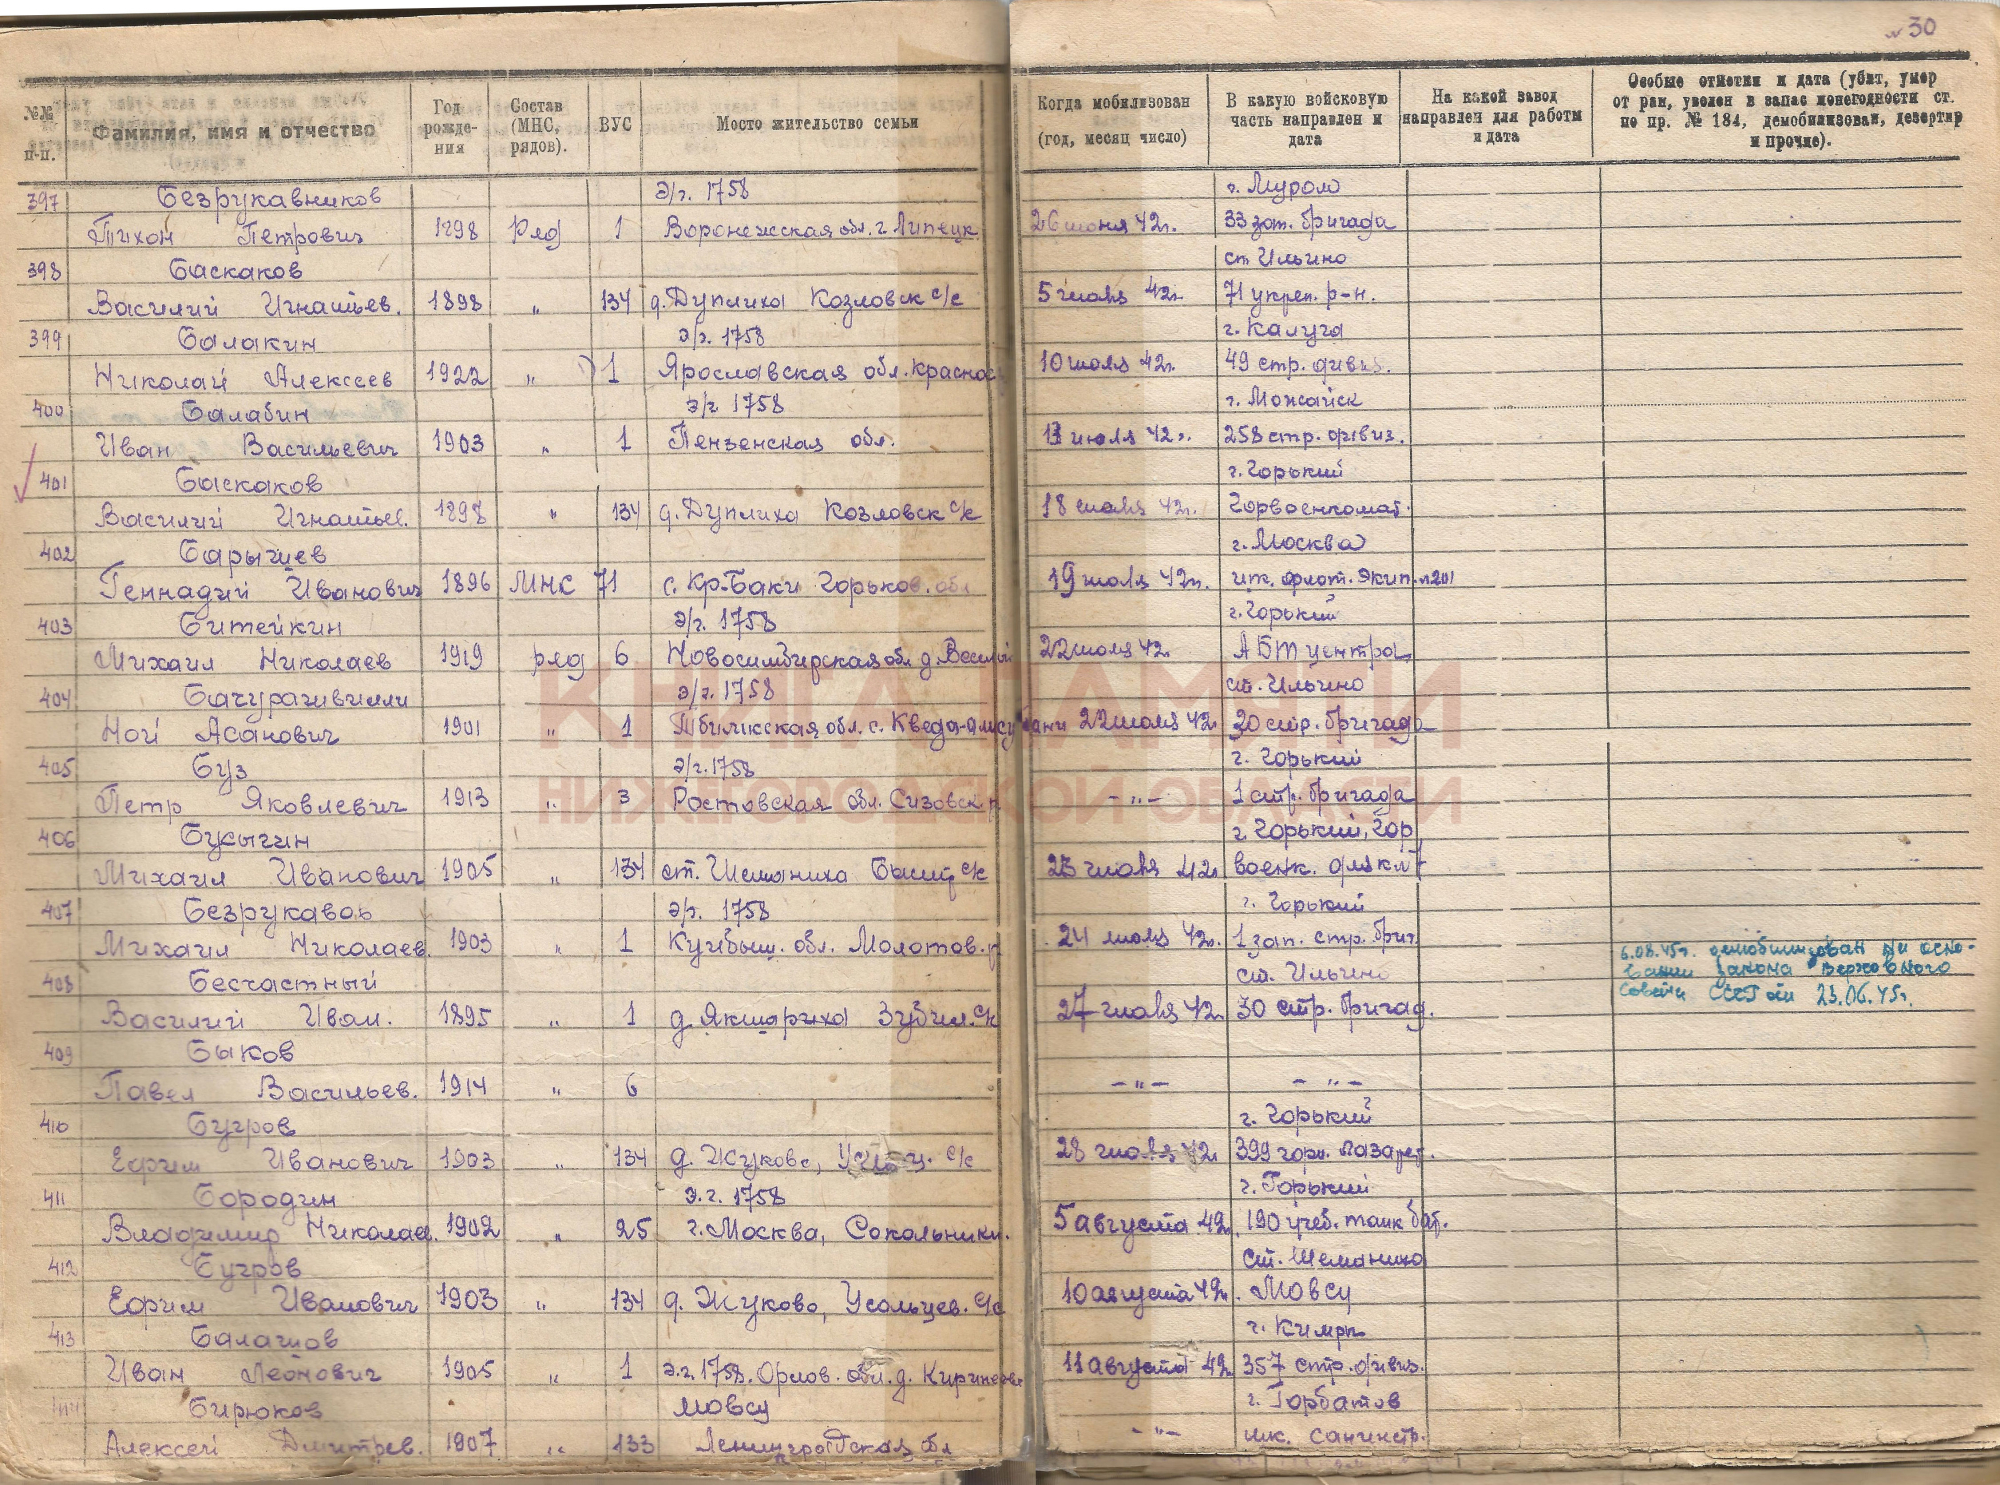 № 30
№№ п-п.
Фамилия, имя и отчество
Год рожде-ния
Состав (МНС, рядов).
ВУС
Мосто жительство семьи
Когда мобилизован (год, месяц число)
В какую войсковую часть направлен и дата
На какой завод направлен для работы и дата
Особые отметки и дата (убит, умер от ран, уволен в запас по негодности ст. по пр. № 184, демобилизован, дезертир и прочие).
397 Безрукавников э/г. 1758 г. Муром
Тихон Петрович 1898 Ряд 1 Воронежская обл. г. Липецк 26 июня 42г. 33 зап. бригада
398 Баскаков ст. Ильино
Василий Игнатьев. 1898 " 134 д. Дуплиха Козловск с/с 5 июля 42г. 71 укреп. р-н.
399 Балакин э/г. 1758 г. Калуга
Николай Алексеев 1922 " 1 Ярославская обл. 10 июля 42г. 49 стр. дивиз.
400 Балабин э/г 1758 г. Можайск
Иван Васильевич 1903 " 1 Пензенская обл. 13 июля 42г. 258 стр. дивиз.
401 Баскаков г. Горький
Василий Игнатьев. 1898 " 134 д. Дуплиха Козловск с/с 18 июля 42г. Горвоенкомат.
402 Барышев г. Москва
Геннадий Иванович 1896 МНС 71 с. Кр. Баки Горьков. обл. 19 июля 42г. флот. Экип.
403 Битейкин э/г. 1758 г. Горький
Михаил Николаев 1919 ряд 6 Новосимбирская обл. д. 22 июля 42г. АБТ центр
404 Бачурашвилли э/г. 1758 ст. Ильино
Ной Асанович 1901 " 1 Тбилисская обл. с. 22 июля 42г. 30 стр. бригада
405 Буз э/г. 1758 г. Горький
Петр Яковлевич 1913 " 3 Ростовская обл. Сизовск р. - " - 1 стр. бригада
406 Бусыгин г. Горький, Гор
Михаил Иванович 1905 " 134 ст. Шеманиха с/с 23 июля 42г. военк.
407 Безрукавов э/г. 1758 г. Горький
Михаил Николаев. 1903 " 1 Куйбыш. обл. Молотов. р. 24 июля 42г. 1 зап. стр. бриг.
408 Бесчастный ст. Ильино
6.08.45г. демобилизован на осно-
вании закона Верховного
Совета СССР от 23.06.45г.
Василий Иван. 1895 " 1 д. Якшариха Зубил. с/с 27 июля 42г. 30 стр. бригад.
409 Быков
Павел Васильев. 1914 " 6 - " - - " -
410 Бугров г. Горький
Ефим Иванович 1903 " 134 д. Жуково, с/с 28 июля 42г. 399 лазарет.
411 Бородин э.г. 1758 г. Горький
Владимир Николаев. 1902 " 25 г. Москва, Сокольники. 5 августа 42г. 190 учеб. танк бат.
412 Бугров ст. Шеманиха
Ефим Иванович 1903 " 134 д. Жуково, Усольцев. с/с 10 августа 42г. МОВСУ
413 Балашов г. Кимры
Иван Леонович 1905 " 1 э.г. 1758. Орлов. обл. д. 11 августа 42г. 357 стр. дивиз.
414 Бирюков МОВСУ г. Горбатов
Алексей Дмитрев. 1907 " 133 Ленинградская обл - " - шк. санинстр.
КНИГА ПАМЯТИ
НИЖЕГОРОДСКОЙ ОБЛАСТИ